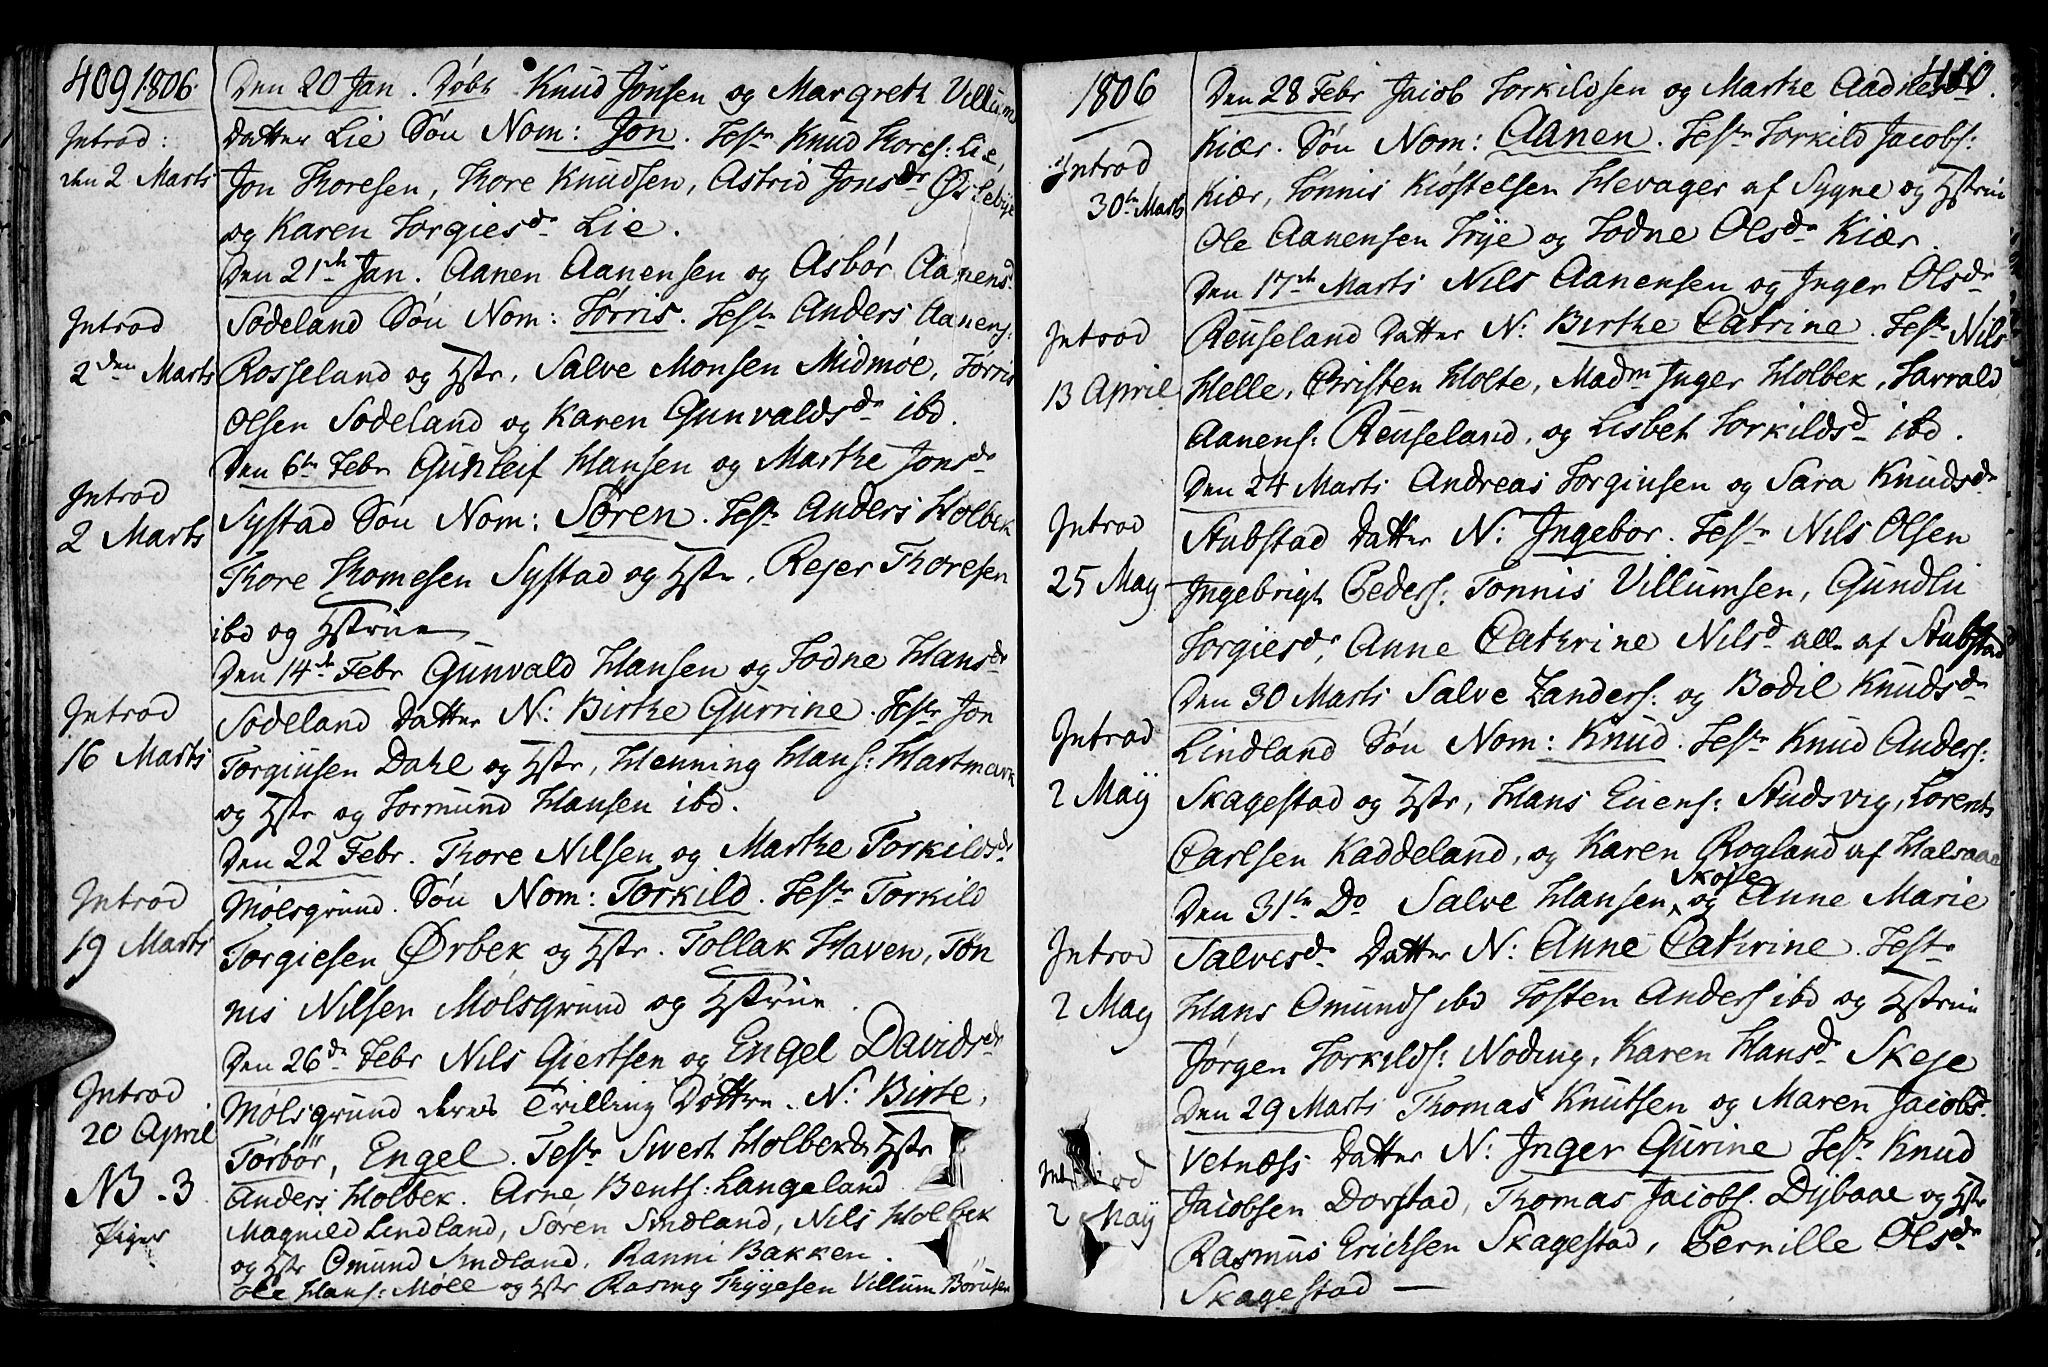 409 1806.
Introd:
den 2 Marts
Introd
2den Marts
Introd
2 Marts
Introd
16 Marts
Introd
19 Marts
Introd
20 April
NB. 3
Piger
Den 20 Jan. Døbt Knud Jonsen og Margreth Villum
datter Lie Søn Nom: Jon. Teste Knud Thores: Lie,
Jon Thoresen, Thore Knudsen, Astrid Jonsdr
og Karen Torgiesdr Lie.
Den 21de Jan. Aanen Aanensen og Asbør Aanensd
Sodeland Søn Nom: Tørris. Teste Anders Aanens:
Rosseland og Hstr, Salve Monsen Midmøe, Tørris
Olsen Sodeland og Karen Gunvaldsdr ibd.
Den 6te Febr Gunleif Hansen og Marthe Jonsdr
Systad Søn Nom: Søren. Teste Anders Holbek
Thore Thomesen Systad og Hstr, Rejer Thoresen
ibd og Hstrue
Den 14de Febr Gunvald Hansen og Todne Hansdr
Sodeland Datter N: Birthe Gurrine. Teste Jon
Torginsen Dahl og Hstr, Henning Hans: Hartmark
og Hstr og Tormund Hansen ibd.
Den 22 Febr. Thore Nilsen og Marthe Torkildsdr
Mølsgrund. Søn Nom: Torkild. Teste Torkild
Torgiesen Ørbek og Hstr. Tollak Haven, Tøn
nis Nilsen Mølsgrund og Hstrue.
Den 26de Febr Nils Giertsen og Engel Davidsdr
Mølsgrund deres Trilling Døttre. N: Birte,
Torbør, Engel. Teste Sivert Holbek & Hstr
Anders Holbek. Arne Bents: Langeland
Magnild Lindland, Søren Sindland, Nils Holbek
og Hstr Omund Sindland, Ranni Bakken.
Ole Hans: Møll og Hstr Rasmg Thygesen Villum Børusen
1806
410.
Introd
30te Marts
Introd
13 April
Introd
25 May
Introd
2 Maÿ
Introd
2 May
Introd
2 Maÿ
Den 28 Febr Jacob Torkildsen og Marthe Aadnesdr.
Kiær. Søn Nom: Aanen. Teste Torkild Jacobs:
Kiær, Tønnis Kiøstelsen Hevager af Sygne og Hstrue
Ole Aanensen Trye og Todne Olsdr Kiær.
Den 17de Marts Nils Aanensen og Inger Olsdr
Reuseland Datter N: Birthe Catrine. Teste Nils
Helle, Christen Holte, Madm Inger Holbek, Harrald
Aanens: Reuseland, og Lisbet Torkildsd ibd.
Den 24 Marts Andreas Torginsen og Sara Knudsdr
Stubstad Datter N: Ingebor. Teste Nils Olsen
Ingebrigt Peders: Tønnis Villumsen, Gundli
Torgiesdr, Anne Cathrine Nilsd alle af Stubstad
Den 30 Marts Salve Zanders: og Bodil Knudsdr
Lindland Søn Nom: Knud. Teste Knud Anders:
Skagestad og Hstr, Hans Evens: Studsvig, Lorents
Carlsen Kaddeland, og Karen Rogland af Halsaae
Den 31te Do Salve Hansen Skøje og Anne Marie
Salvesdr Datter N: Anne Cathrine. Teste
Hans Omunds ibd Tosten Anders ibd og Hstrue
Jørgen Torkilds: Noding, Karen Hansdr Skeje
Den 29 Marts Thomas Knutsen og Maren Jacobs:
Vetnæss Datter N: Inger Gurine Test Knud
Jacobsen Dorstad, Thomas Jacobs. Dybaae og Hstr
Rasmus Ericksen Skagestad, Pernille Olsdr
Skagestad —